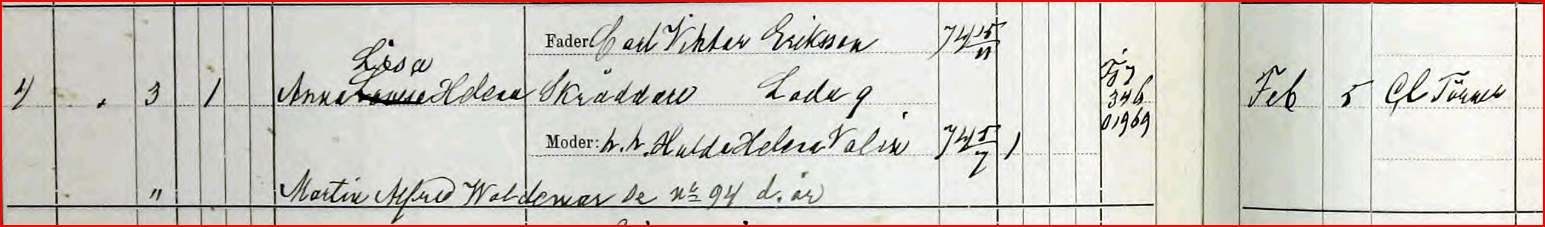 Fader: Carl Viktor Eriksson 74 15/11
Lisa
4 " 3 1 Anna Helena Skräddare Lada 9 Feb 5 Cl Törner
346
01969
Moder: h. h. Hulda Helena Valin 74 5/7 1
" Martin Alfred Waldemar se nr 94 d. år